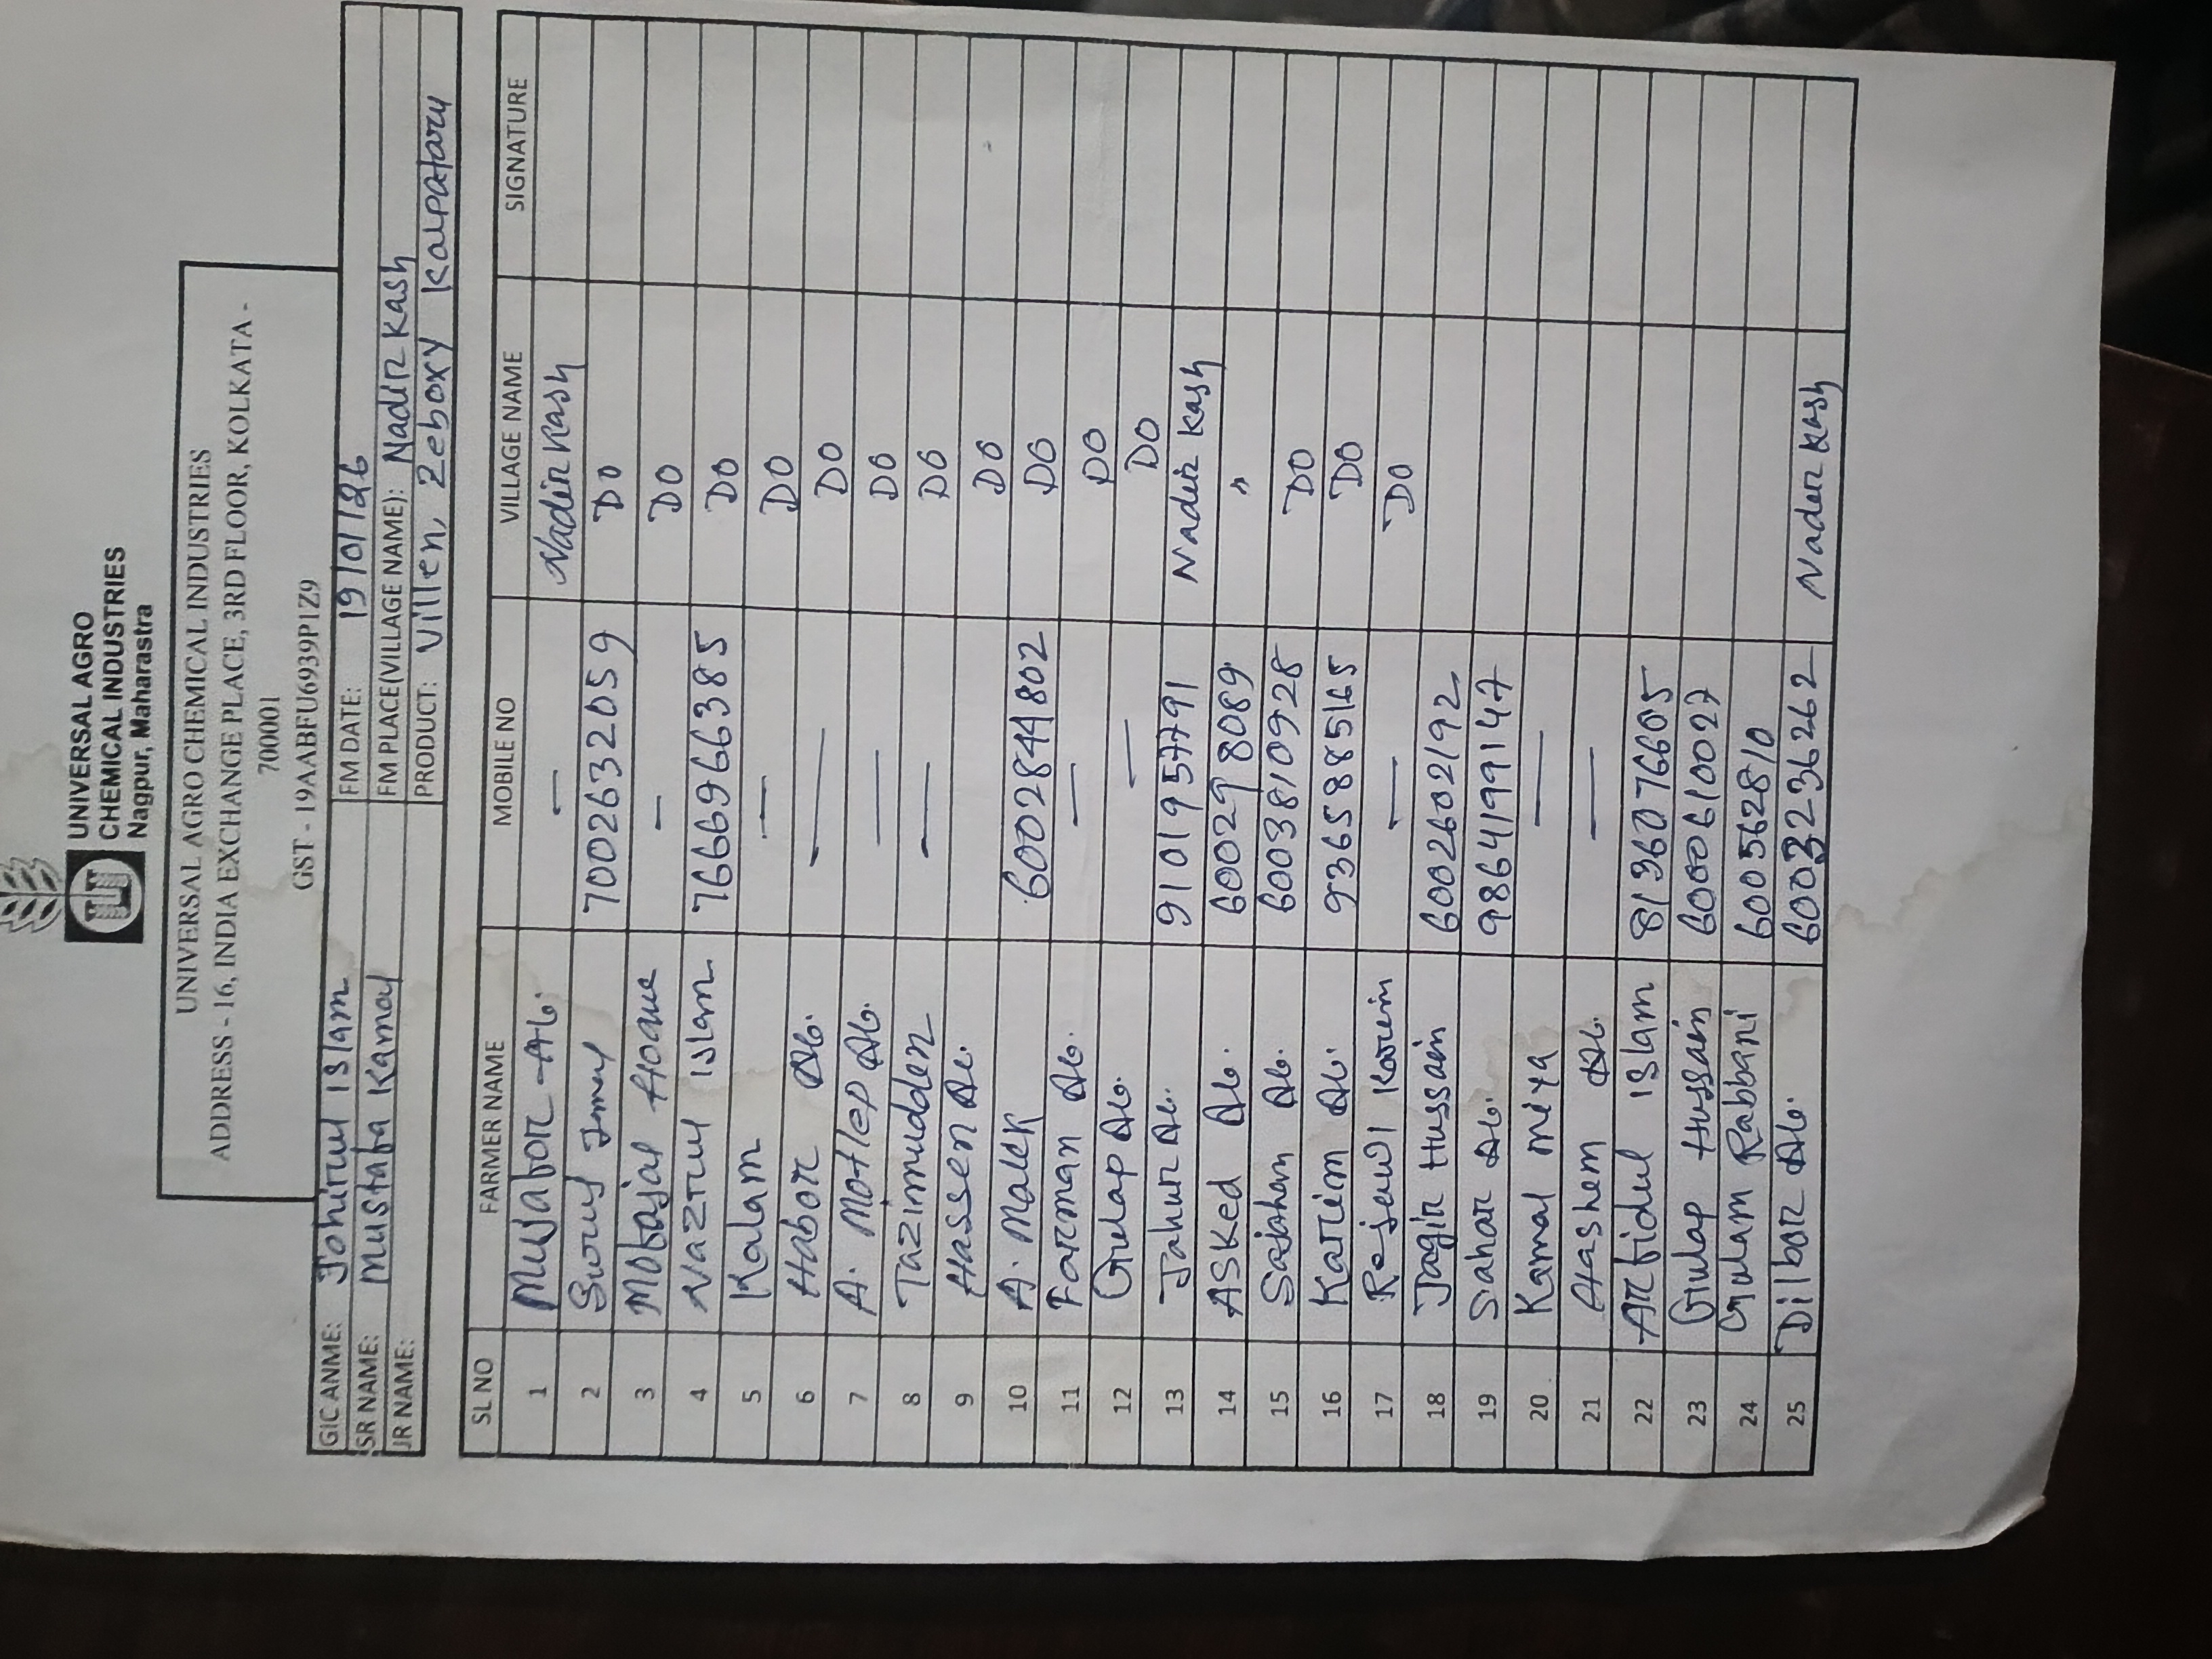 UNIVERSAL AGRO
CHEMICAL INDUSTRIES
Nagpur, Maharastra
UNIVERSAL AGRO CHEMICAL INDUSTRIES
ADDRESS - 16, INDIA EXCHANGE PLACE, 3RD FLOOR, KOLKATA -
700001
GST - 19AABFU6939P1Z9
GIC ANME: Johirul Islam FM DATE: 19/01/26
SR NAME: Mustafa Kamal FM PLACE(VILLAGE NAME): Nadir Kash
JR NAME: PRODUCT: Villen, Zeboxy Kalpataru
SL NO FARMER NAME MOBILE NO VILLAGE NAME SIGNATURE
1 Mujabor Ali. — Nadir Kash
2 7002632059 DO
3 Mofajal Hoque — DO
4 Nazrul Islam 7666966385 DO
5 Kalam — DO
6 Habor Ali. — DO
7 A. Motlep Ali. — DO
8 Tazimudden — DO
9 Hassen Ali. DO
10 A. Malek 6002844802 DO
11 Farman Ali. — DO
12 Gulap Ali. — DO
13 Jahur Ali. 9101957791 Nadir Kash
14 ASKed Ali. 600298089 "
15 Sajahan Ali. 6003810928 DO
16 Karim Ali. 9365885165 DO
17 Rejawl Karim — DO
18 Jagir Hussain 6002602192
19 Sahar Ali. 9864199147
20 Kamal miya —
21 Hashem Ali. —
22 Arfidul Islam 8136076605
23 Gulap Hussain 6000610027
24 Gulam Rabbani 600562810
25 Dilbar Ali. 6003236262 Nader Kash